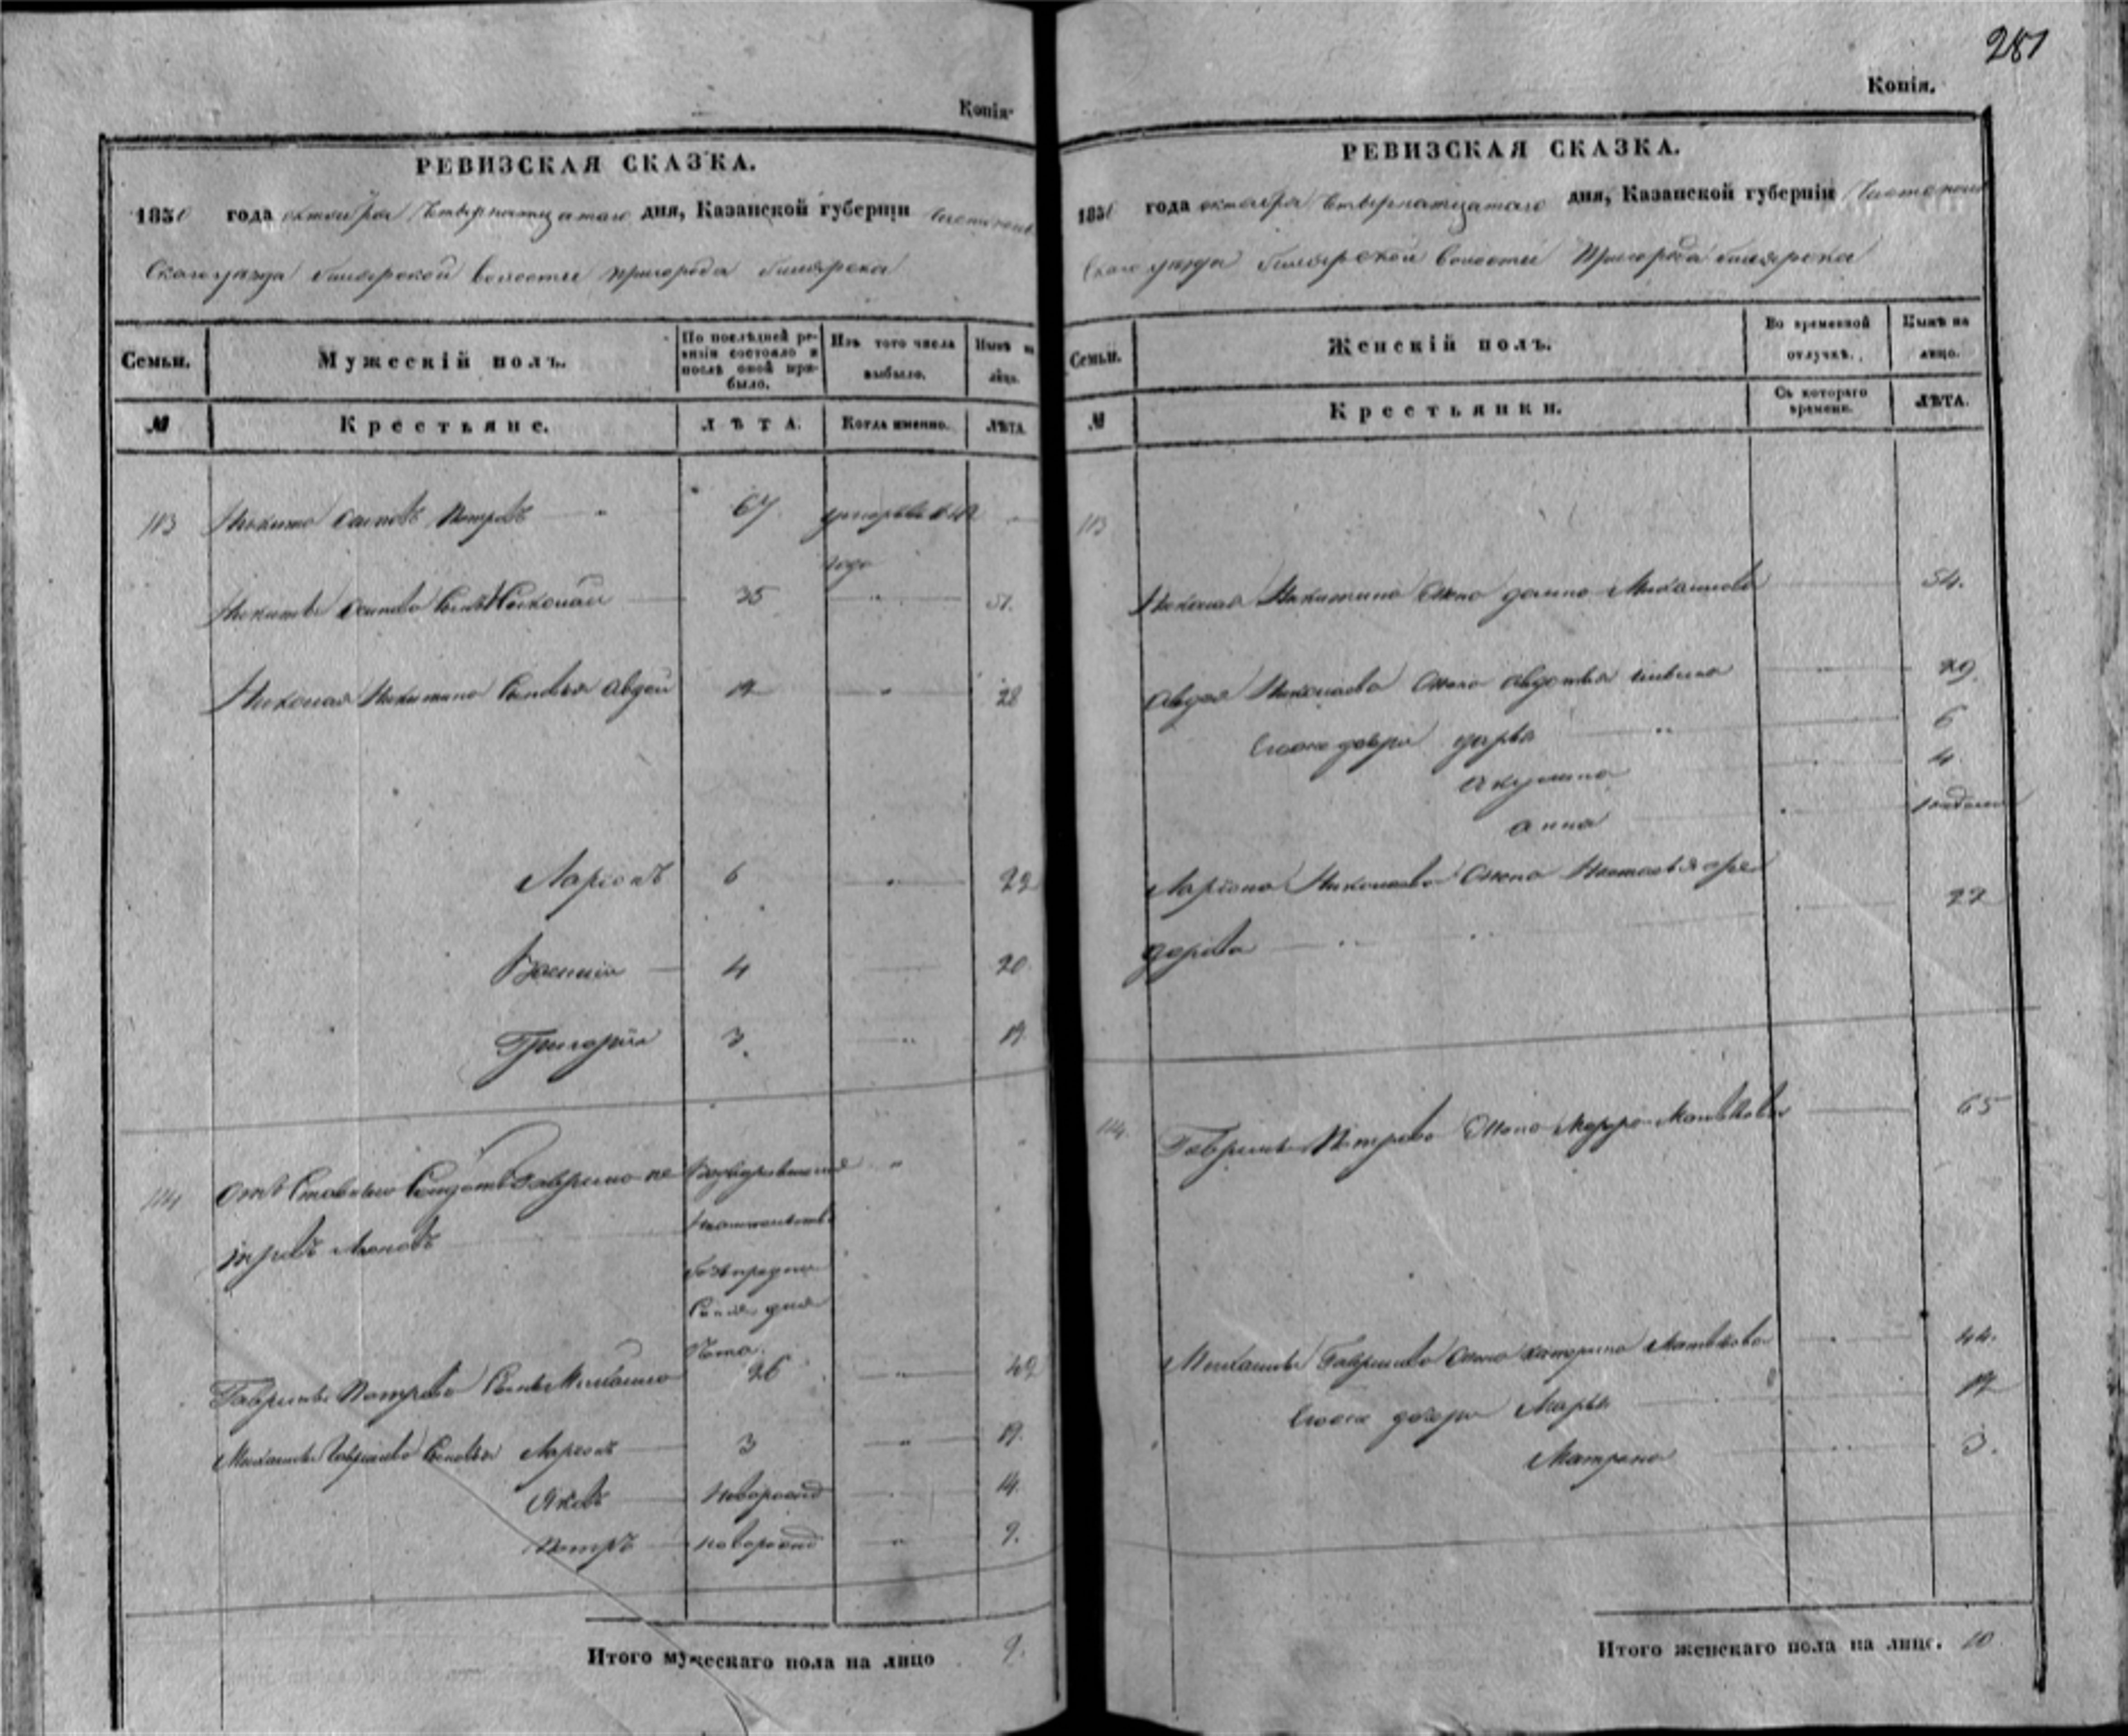 Копія.
РЕВИЗСКАЯ СКАЗКА.
1850 года октября Четырнатцатаго дня, Казанской губерніи Чистополь
скаго уезда билярской волости пригорода билярска
Семьи. Мужескій полъ. По послѣдней ревизіи состояло и послѣ оной прибыло. Изъ того числа выбыло. Нынѣ на лицо.
№ Крестьяне. ЛѢТА. Когда именно. ЛѢТА.
113 Никита Осиповъ Петровъ 67 умеръ въ
года
Осипова Сынъ Николай 35 51.
Николая Никитина Сыновья Авдей 12 28
Ларіонъ 6 22
Василій 4 20
Григорій 3. 19
114 Гаврило Пе
тровъ
Гаврилы Петрова Сынъ Михайло 26 42
Михайлы Гаврилова Сыновья Ларіонъ 3 19.
Яковъ новорожд 14
Петръ новорожд 9.
Итого мужескаго пола на лицо 9.
281
Копія.
РЕВИЗСКАЯ СКАЗКА.
1850 года октября Четырнатцатаго дня, Казанской губерніи Чистополь
скаго уезда билярской волости Пригорода билярска
Семьи. Женскій полъ. Во временной отлучкѣ. Нынѣ на лицо.
№ Крестьянки. Съ котораго времени. ЛѢТА.
113
Николая Никитина Жена Михайлова 54.
Авдея Николаева Жена Авдотья 29.
Ево же дочери Дарья 6
Акулина 4
Анна
Ларіона Николаева Жена Настасья Фе
дорова 22
114. Гаврилы Петрова Жена Марфа Матвѣева 65
Михайлы Гаврилова Жена Катерина Матвѣева 44.
Ево же дочери Марья 12
Матрена 3.
Итого женскаго пола на лицо. 10.